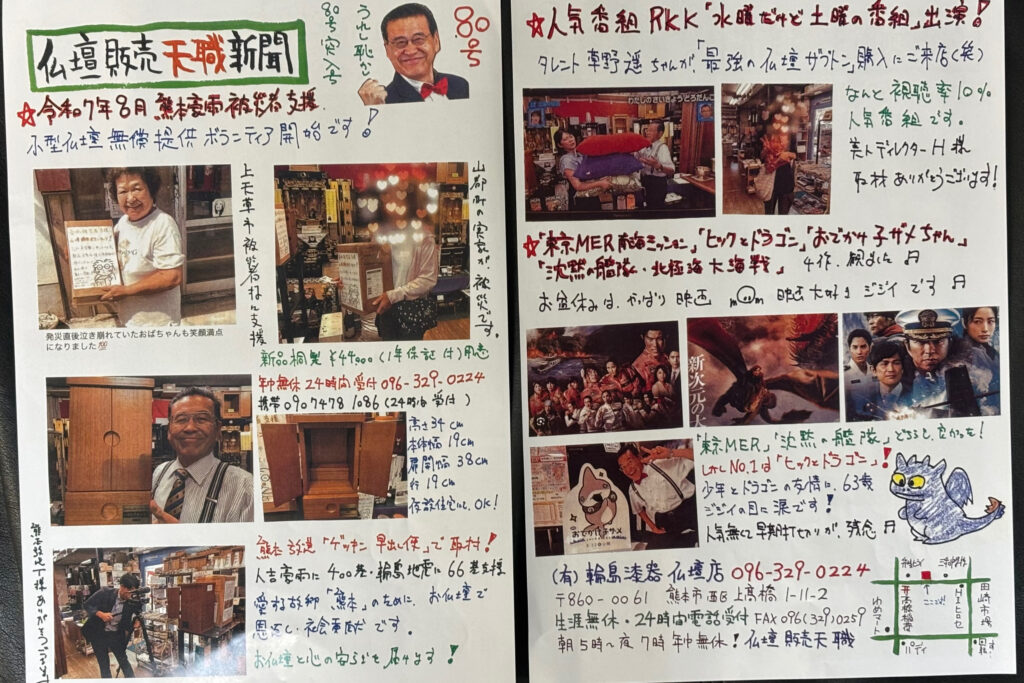 仏壇販売天職新聞
うれし恥かし
80号突入号
80号
★令和7年8月 熊本豪雨被災者支援
小型仏壇無償提供ボランティア開始です!
上天草市被災者様に支援
山都町の実家が、被災です。
発災直後泣き崩れていたおばちゃんも笑顔満点
になりました💯
新品桐製 ¥44000(1年保証付)用意
年中無休24時間受付 096-329-0224
携帯 090 7478 1086(24時間受付)
高さ34cm
本体幅19cm
扉開幅38cm
行19cm
仮設住宅にも、OK!
熊本放送「ゲツキン早出し便」で取材!
人吉豪雨に400基・輪島地震に66基支援
愛する故郷「熊本」のために、お仏壇で
恩返し・社会貢献です。
お仏壇と心の安らぎを届けます!
★人気番組RKK「水曜だけど土曜の番組」出演!
タレント草野遥ちゃんが、「最強の仏壇ザブトン」購入にご来店(笑)
わたしのさいきょうどろだんご
なんと視聴率10%
人気番組です。
美人ディレクターH様
取材ありがとうございます!
★「東京MER南海ミッション」「ヒックとドラゴン」「おでかけ子ザメちゃん」
「沈黙の艦隊・北極海大海戦」 4作、観ました
お盆休みは、やっぱり映画 映画大好きジジイです
新次元の
おでかけ子ザメ
「東京MER」「沈黙の艦隊」どちらも、良かった!
しかしNo.1は「ヒックとドラゴン」!
少年とドラゴンの友情に、63歳
ジジイの目に涙です!
人気無くて早期打ち切りが、残念
(有)輪島漆器仏壇店 096-329-0224
〒860-0061 熊本市西区上高橋1-11-2
生涯無休・24時間電話受付 FAX 096(329)0259
朝5時〜夜7時 年中無休!仏壇販売天職
ここだ!
ゆめマート
田崎市場